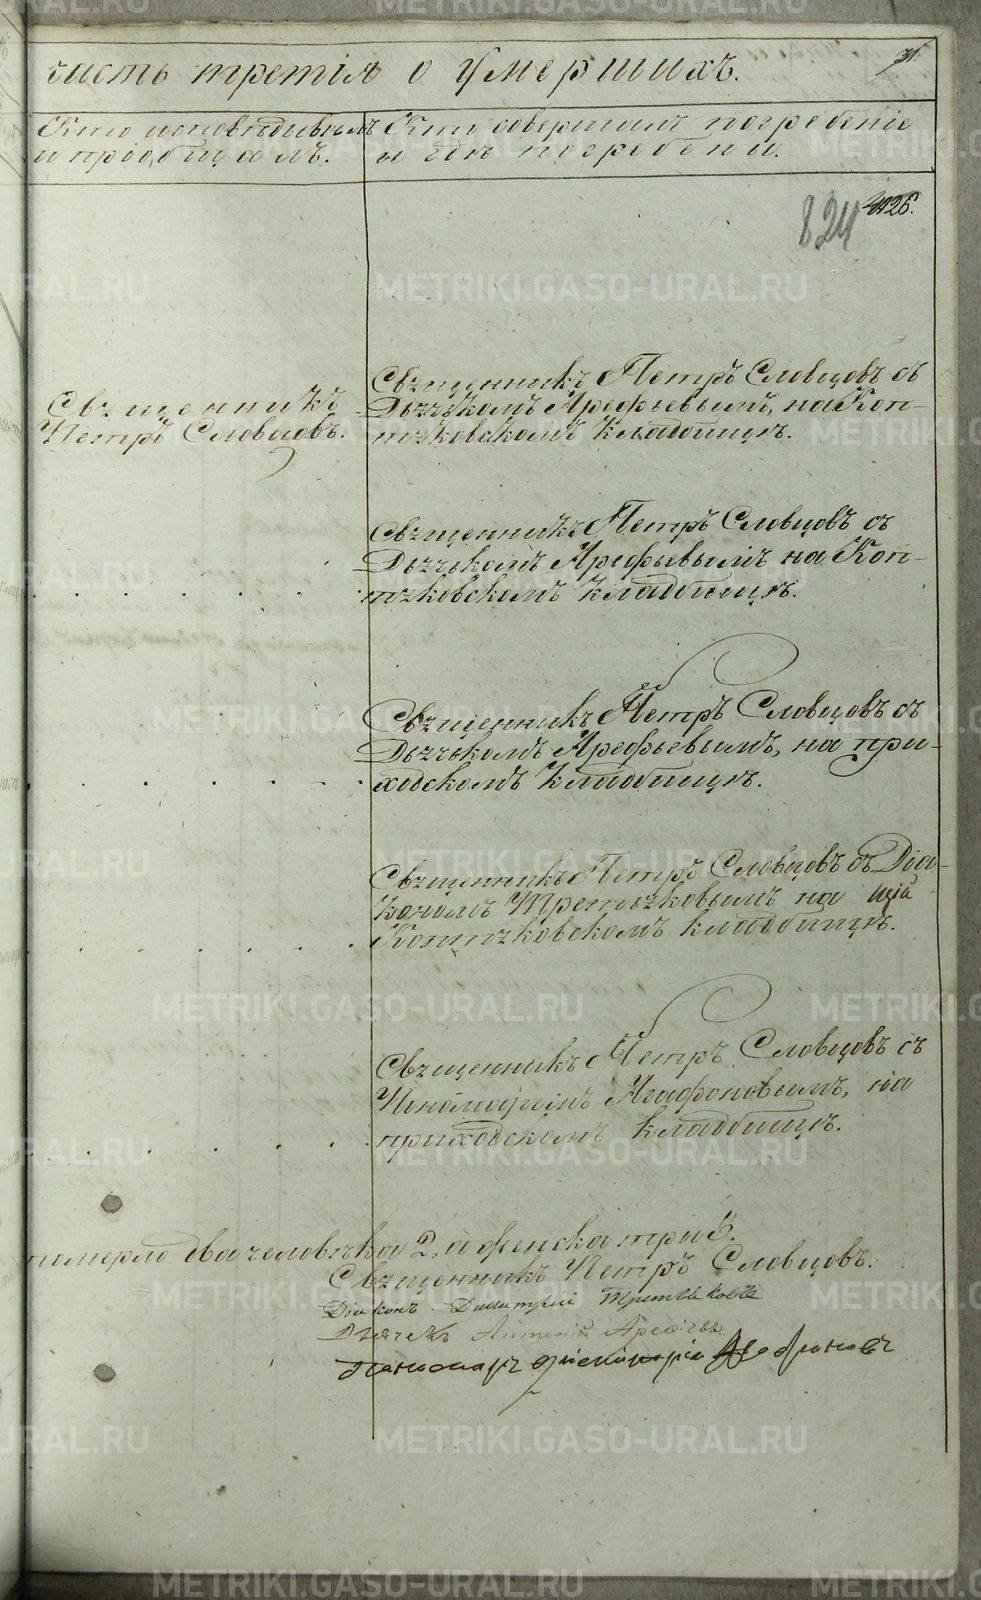 часть третія о умершихъ.
31.
Кто исповѣдывалъ
и пріобщалъ.
Кто совершилъ погребеніе
и гдѣ погребены.
824
Священникъ
Петръ Словцовъ.
Священникъ Петръ Словцовъ съ
Дьячькомъ Арефьевымъ, на Коп-
тяковскомъ кладбищѣ.
Священникъ Петръ Словцовъ съ
Дьячькомъ Арефьевымъ на Коп-
тяковскомъ кладбищѣ.
Священникъ Петръ Словцовъ съ
Дьячькомъ Арефьевымъ, на при-
ходскомъ кладбищѣ.
Священникъ Петръ Словцовъ съ Діа-
кономъ Третьяковымъ на
Коптяковскомъ кладбищѣ.
Священникъ Петръ Словцовъ съ
Пономаремъ Агафоновымъ, на
приходскомъ кладбищѣ.
померло два человѣка 2, а женска три 3.
Священникъ Петръ Словцовъ.
Діаконъ Димитрій Третьяковъ
Дьячекъ Антоній Арефьевъ
Пономарь Агафоновъ
METRIKI.GASO-URAL.RU